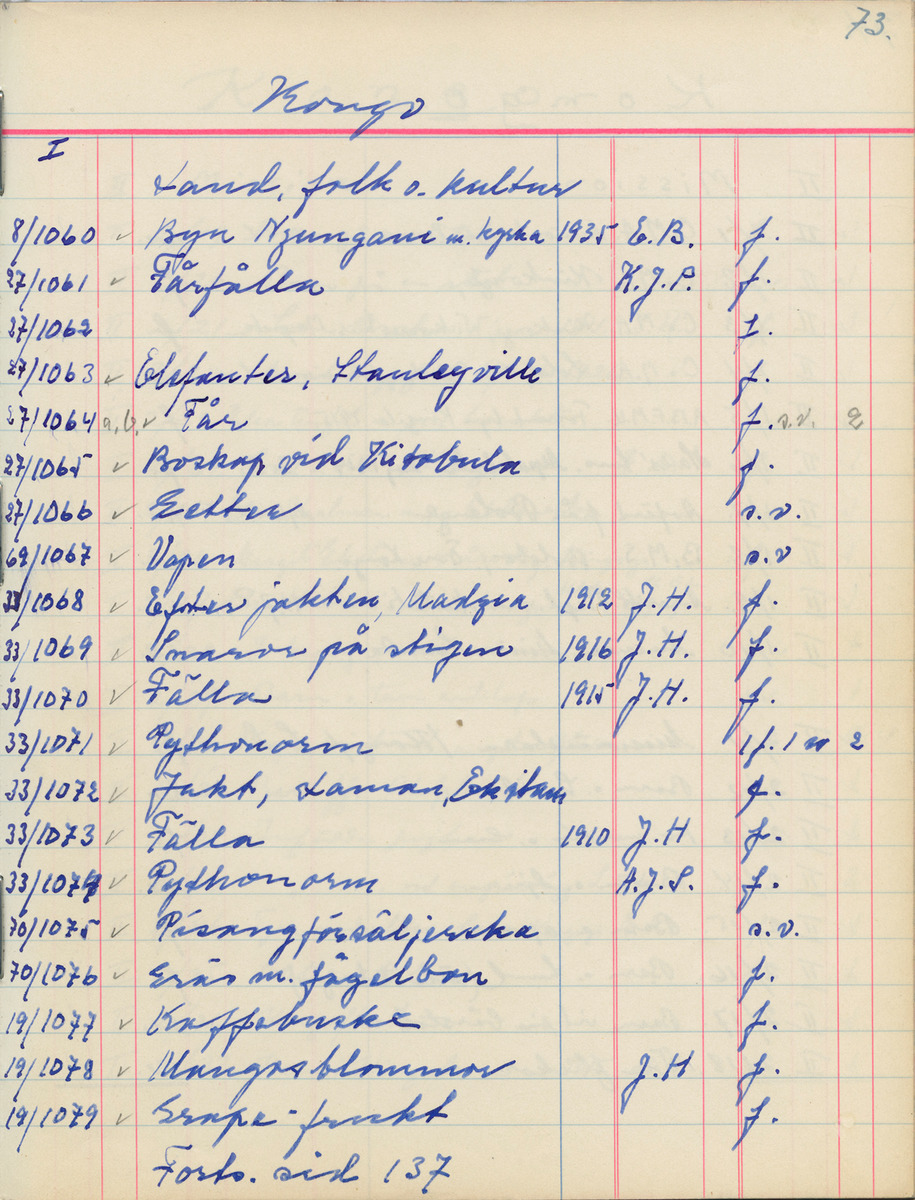 73.
Kongo
I
Land, folk o. kultur
8/1060 ✓ Byn Nzungani m. kyrka 1935 E.B. f.
27/1061 ✓ Fårfålla K.J.P. f.
27/1062 f.
27/1063 ✓ Elefanter, Stanleyville f.
27/1064 a, b, ✓ Får f. s.v. 2
27/1065 ✓ Boskap vid Kitobula f.
27/1066 ✓ Getter s.v.
69/1067 ✓ Vapen s.v
33/1068 ✓ Efter jakten, Madzia 1912 J.H. f.
33/1069 ✓ Snaror på stigen 1916 J.H. f.
33/1070 ✓ Fälla 1915 J.H. f.
33/1071 ✓ Pythonorm 1 f. 1 sv 2
33/1072 ✓ Jakt, Laman, Ekstam f.
33/1073 ✓ Fälla 1910 J.H f.
33/1074 ✓ Pythonorm A.J.S. f.
70/1075 ✓ Pisangförsäljerska s.v.
70/1076 ✓ Gräs m. fågelbon f.
19/1077 ✓ Kaffebuske f.
19/1078 ✓ Mangoblommor J.H f.
19/1079 ✓ Grape-frukt f.
Forts. sid 137